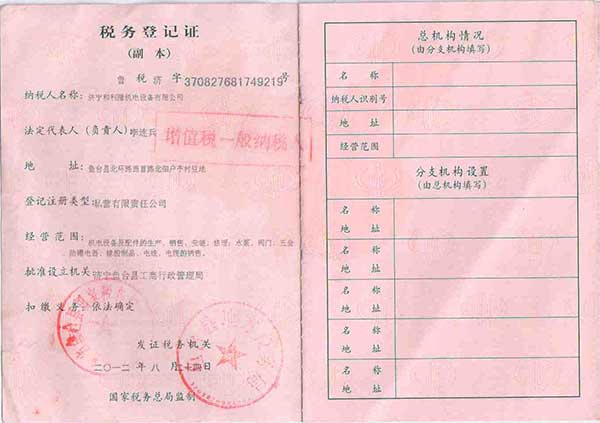 税务登记证
(副 本)
鲁 税 济 字 370827681749219 号
纳税人名称: 济宁和利隆机电设备有限公司
法定代表人(负责人) 李连兵
增值税一般纳税人
地 址: 鱼台县北环路西首路北
登记注册类型: 私营有限责任公司
经 营 范 围: 机电设备及配件的生产、销售、安装、修理;水泵、阀门、五金、
防爆电器、橡胶制品、电线、电缆的销售。
批准设立机关: 济宁鱼台县工商行政管理局
扣 缴 义 务: 依法确定
发证税务机关
二〇一二 年 八 月 日
国家税务总局监制
总机构情况
(由分支机构填写)
名 称
纳税人识别号
地 址
经营范围
分支机构设置
(由总机构填写)
名 称
地 址
名 称
地 址
名 称
地 址
名 称
地 址
名 称
地 址